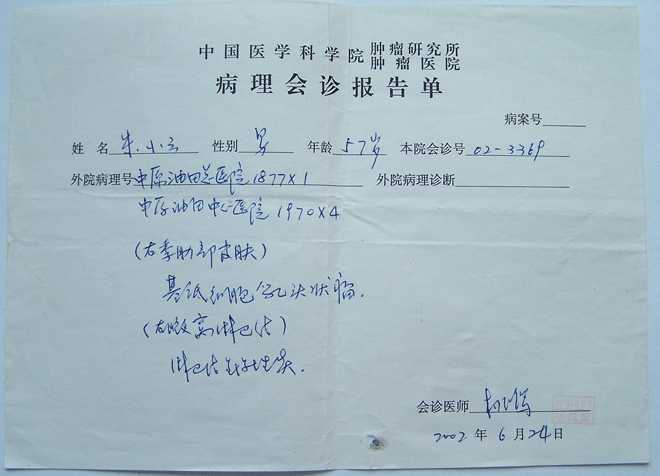 中国医学科学院肿瘤研究所
肿瘤医院
病理会诊报告单
病案号
姓名 朱小云 性别 男 年龄 57岁 本院会诊号 02-3369
外院病理号 中原油田总医院 1877×1 外院病理诊断
中原油田中心医院 1970×4
(右季肋部皮肤)
基底细胞乳头状瘤.
(右腋窝淋巴结)
淋巴结
会诊医师
2002年6月24日